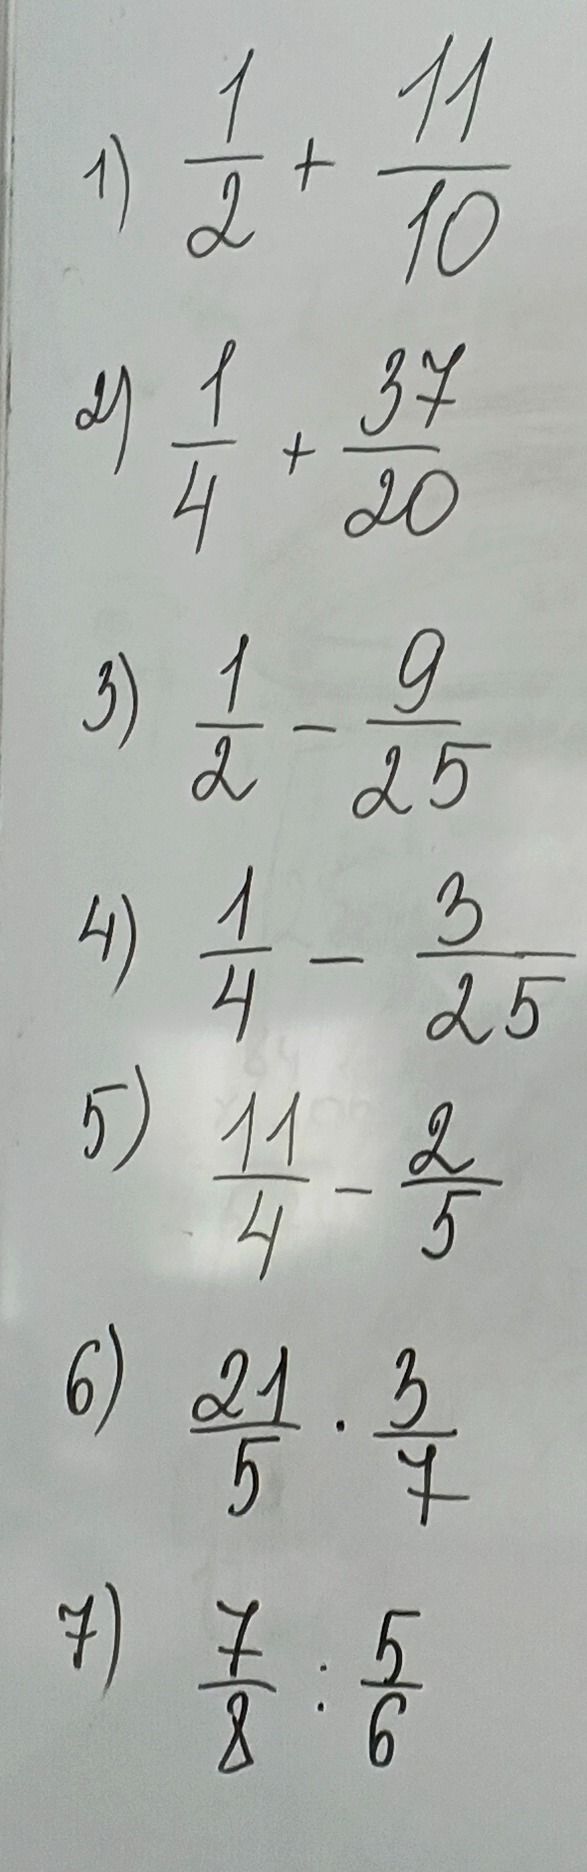 1) 1/2 + 11/10
2) 1/4 + 37/20
3) 1/2 - 9/25
4) 1/4 - 3/25
5) 11/4 - 2/5
6) 21/5 · 3/7
7) 7/8 : 5/6